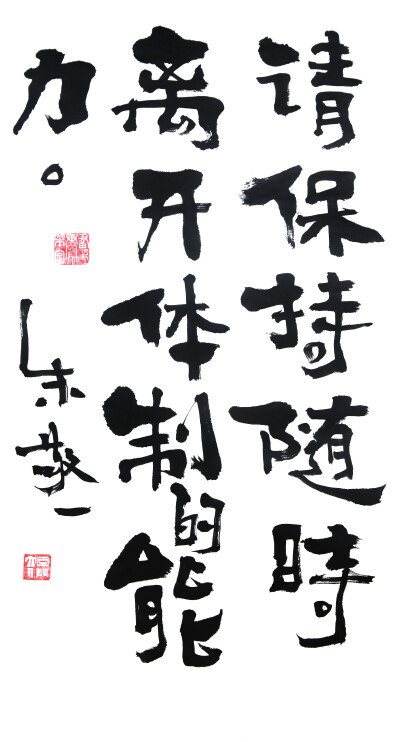 请保持随時
离开体制的能
力。
朱敬一